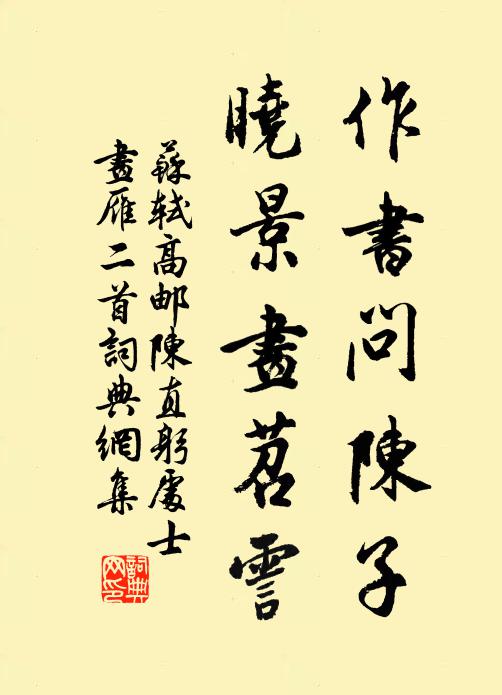 作書問陳子
曉景畫苕霅
蘇軾高邮陳直躬處士
畫雁二首詞典網集
詞典
网印